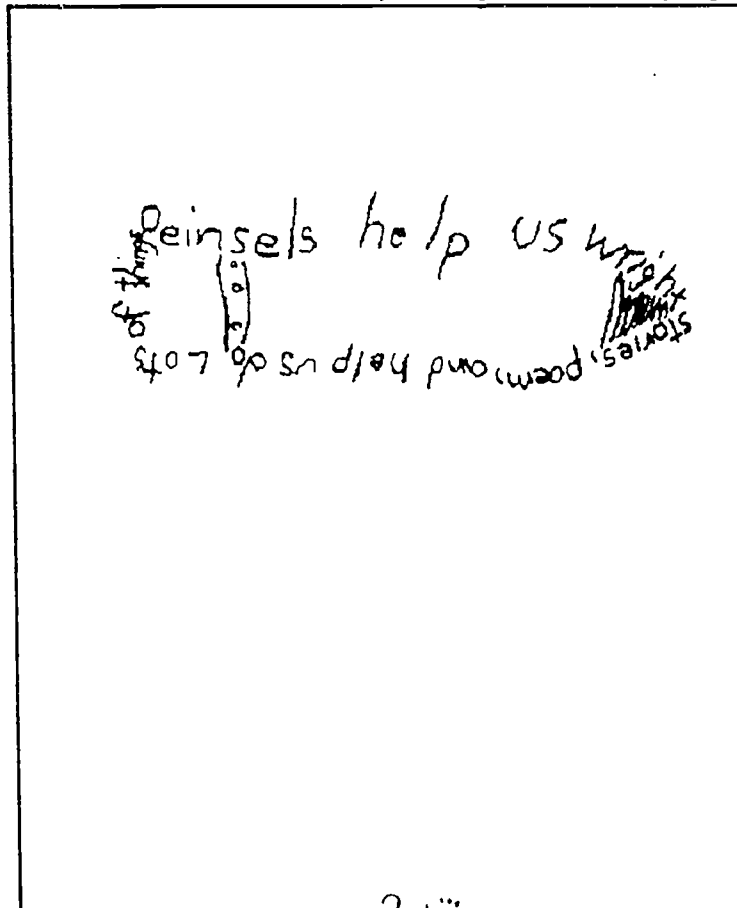 Peinsels help us
stories, poem, and help us do Lots
of things